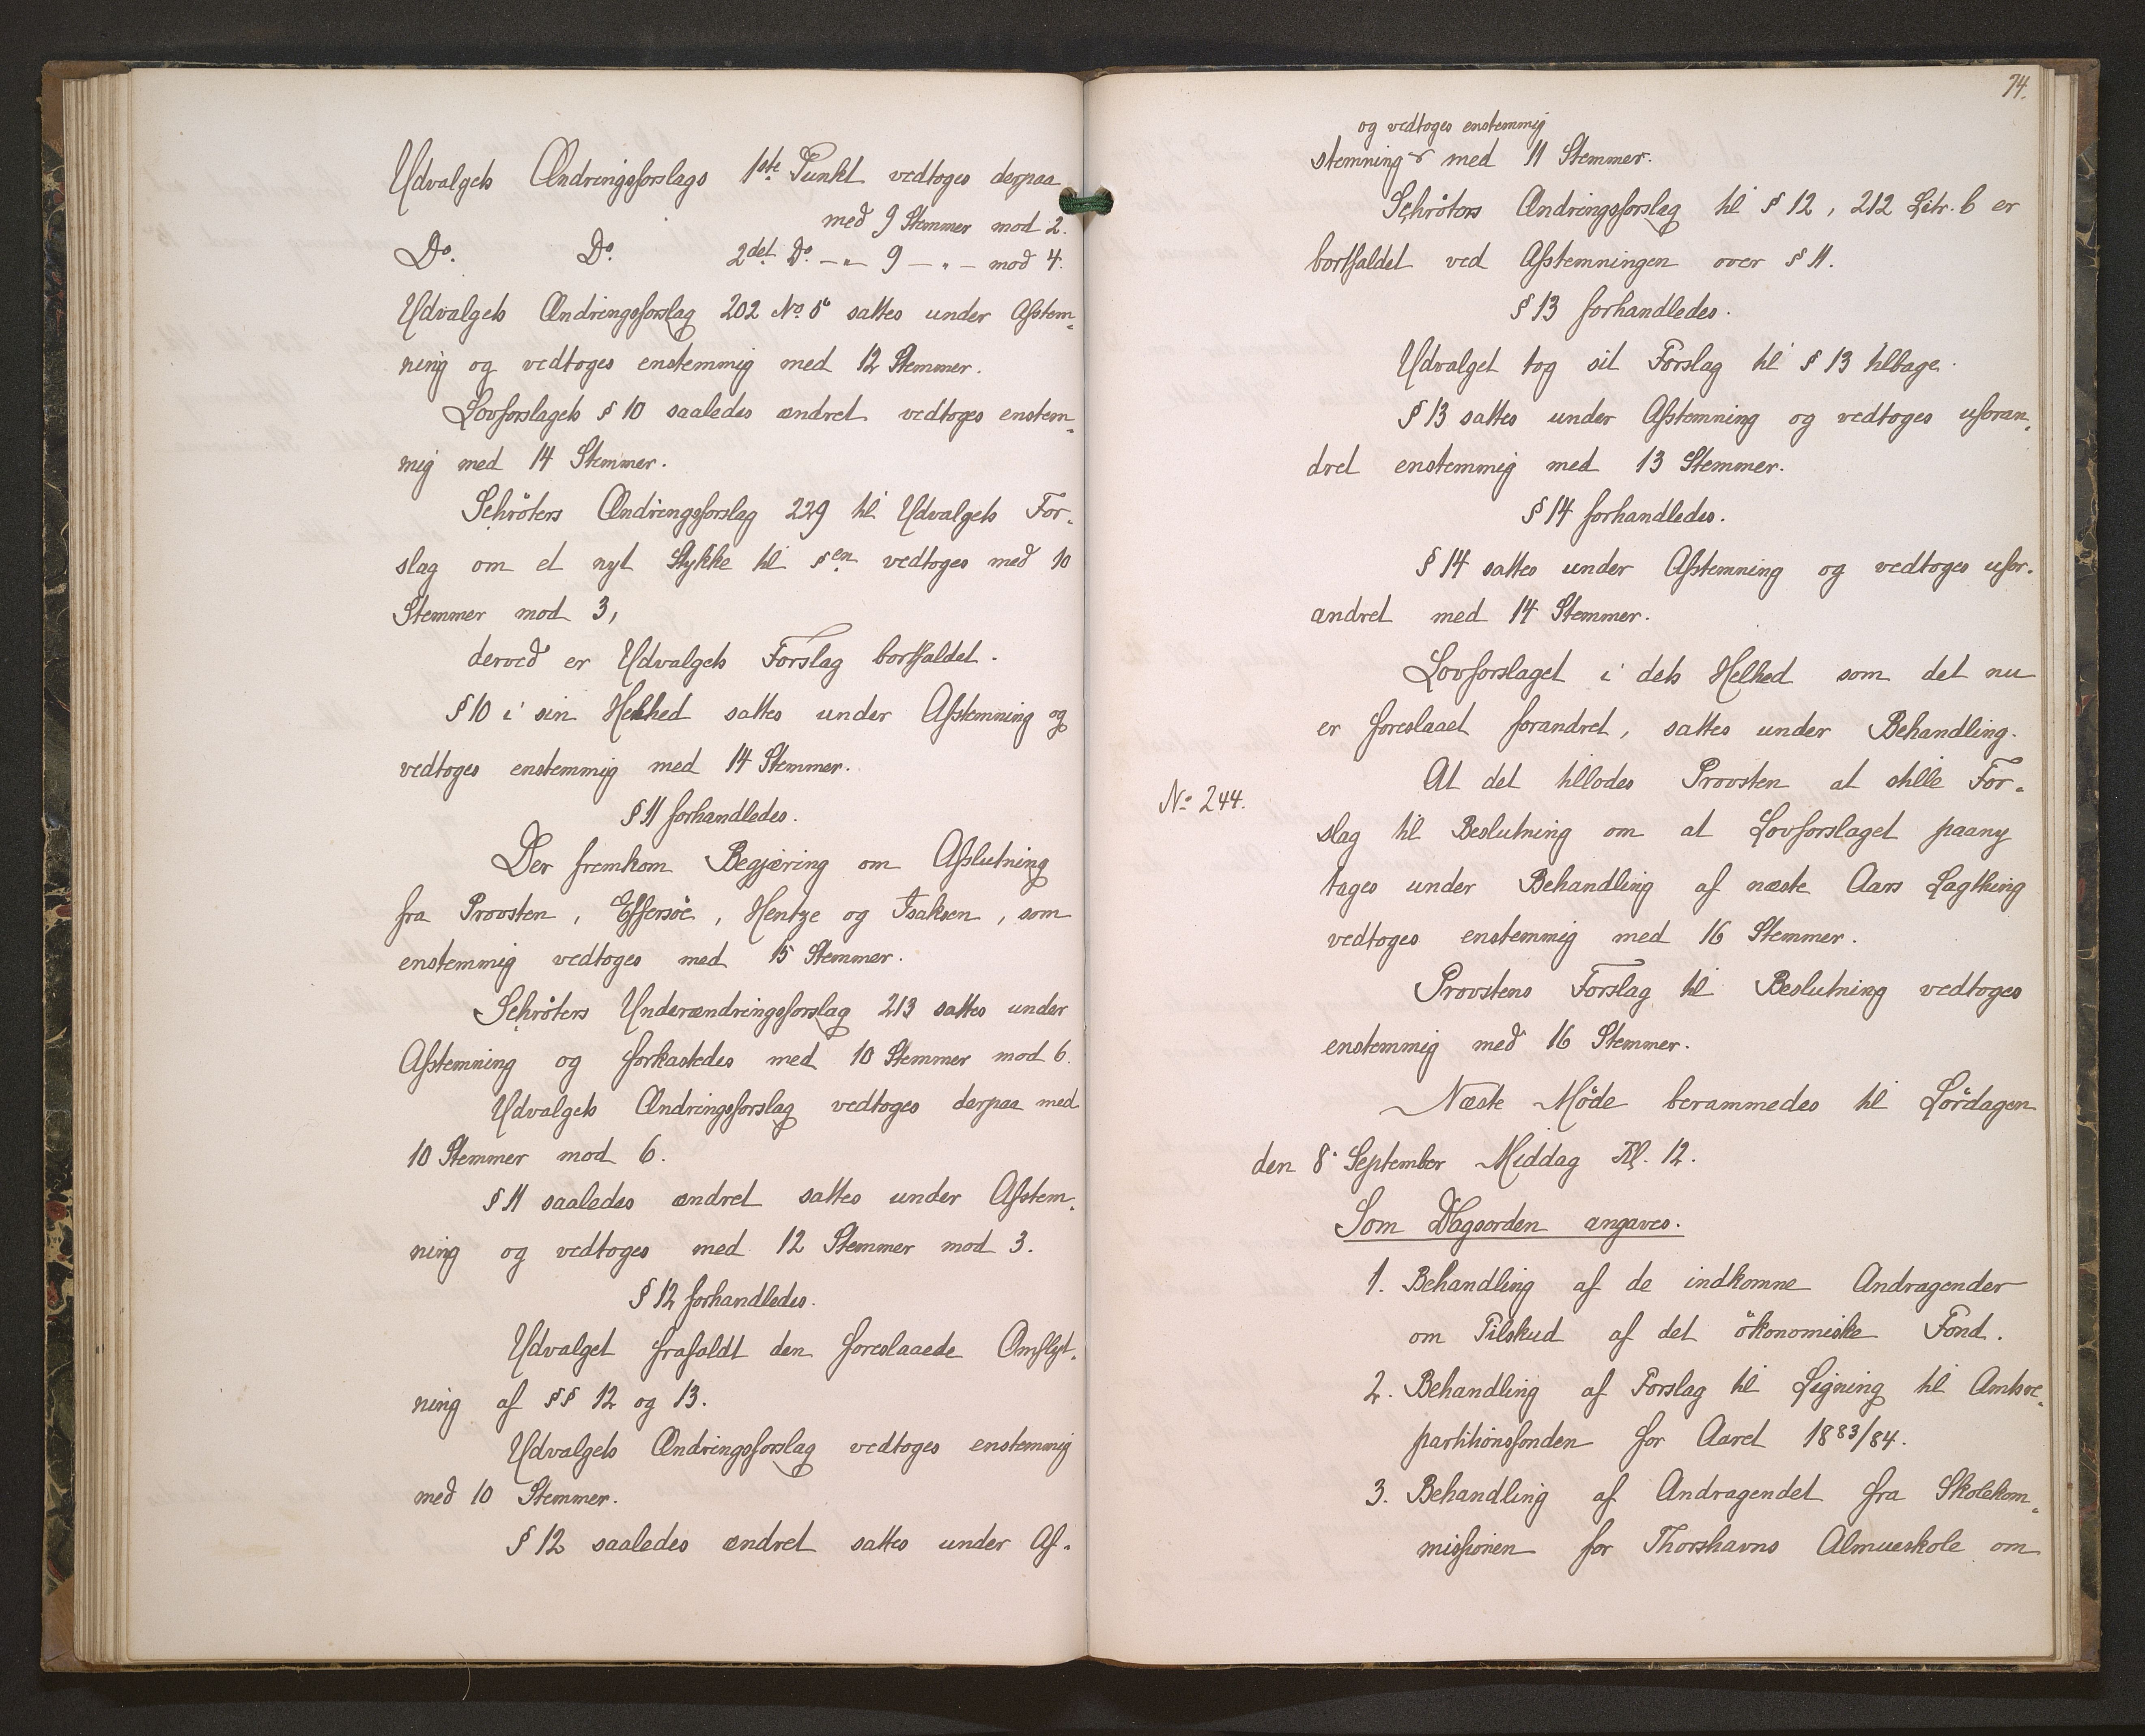 Udvalgets Ændringsforslags 1ste Punkt vedtoges derpaa
med 9 Stemmer mod 2.
Do. Do. 2det Do. – „ – 9 – „ – mod 4.
Udvalgets Ændringsforslag 202 No. 5 sattes under Afstem-
ning og vedtoges enstemmig med 12 Stemmer.
Lovforslagets § 10 saaledes ændret vedtoges enstem-
mig med 14 Stemmer.
Schröters Ændringsforslag 229 til Udvalgets For-
slag om et nyt Stykke til §en vedtoges med 10
Stemmer mod 3,
derved er Udvalgets Forslag bortfaldet.
§ 10 i sin Helhed sattes under Afstemning og
vedtoges enstemmig med 14 Stemmer.
§ 11 forhandledes.
Der fremkom Begjæring om Afslutning
fra Provsten, Effersöe, Hentze og Isaksen, som
enstemmig vedtoges med 15 Stemmer.
Schröters Underændringsforslag 213 sattes under
Afstemning og forkastedes med 10 Stemmer mod 6.
Udvalgets Ændringsforslag vedtoges derpaa med
10 Stemmer mod 6.
§ 11 saaledes ændret sattes under Afstem-
ning og vedtoges med 12 Stemmer mod 3.
§ 12 forhandledes.
Udvalget frafaldt den foreslaaede Omflyt-
ning af §§ 12 og 13.
Udvalgets Ændringsforslag vedtoges enstemmig
med 10 Stemmer.
§ 12 saaledes ændret sattes under Af-
74.
og vedtoges enstemmig
stemning med 11 Stemmer.
Schröters Ændringsforslag til § 12, 212 Litr. b er
bortfaldet ved Afstemningen over § 11.
§ 13 forhandledes.
Udvalget tog sit Forslag til § 13 tilbage.
§ 13 sattes under Afstemning og vedtoges uforan-
dret enstemmig med 13 Stemmer.
§ 14 forhandledes.
§ 14 sattes under Afstemning og vedtoges ufor-
andret med 14 Stemmer.
Lovforslaget i dets Helhed som det nu
er foreslaaet forandret, sattes under Behandling.
At det tillodes Provsten at stille For-
No. 244.
slag til Beslutning om at Lovforslaget paany
tages under Behandling af næste Aars Lagthing
vedtoges enstemmig med 16 Stemmer.
Provstens Forslag til Beslutning vedtoges
enstemmig med 16 Stemmer.
Næste Möde berammedes til Lördagen
den 8. September Middag Kl. 12.
Som Dagsorden angaves.
1. Behandling af de indkomne Andragender
om Tilskud af det ökonomiske Fond.
2. Behandling af Forslag til Ligning til Amtsre-
partitionsfonden for Aaret 1883/84.
3. Behandling af Andragendet fra Skolekom-
missionen for Thorshavns Almueskole om